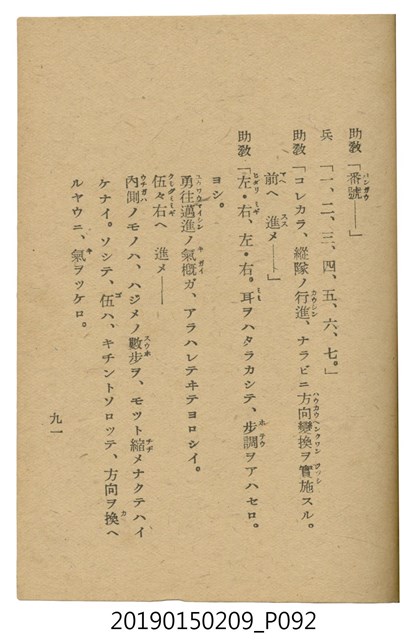 助教「番號――」
兵「一、二、三、四、五、六、七。」
助教「コレカラ、縱隊ノ行進、ナラビニ方向變換ヲ實施スル。
前ヘ　進メ――」
助教「左・右、左・右。耳ヲハタラカシテ、步調ヲアハセロ。
ヨシ。
勇往邁進ノ氣槪ガ、アラハレテヰテヨロシイ。
伍々右ヘ　進メ――
內側ノモノハ、ハジメノ數步ヲ、モット縮メナクテハイ
ケナイ。ソシテ、伍ハ、キチントソロッテ、方向ヲ換ヘ
ルヤウニ、氣ヲツケロ。
九一
20190150209_P092